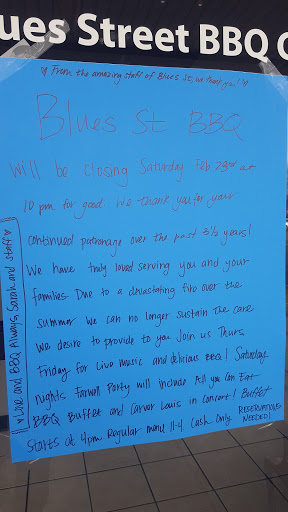 ues Street BBQ C
♡ From the amazing staff of Blues St, we thank you! ♡
Blues St BBQ
Will be closing Saturday Feb 23rd at
10 pm for good. We thank you for your
continued patronage over the past 3½ years!
We have truly loved serving you and your
families Due to a devastating fire over the
summer we can no longer sustain the care
we desire to provide to you Join us Thurs,
Friday for live music and delicious BBQ! Saturdays
nights farwell Party will include All you can Eat
BBQ Buffet and Carvor Louis in concert! Buffet
Starts at 4pm Regular menu 11-4 Cash Only. RESERVATIONS
NEEDED!
♡ Love and BBQ Always, Sarah and Staff ♡